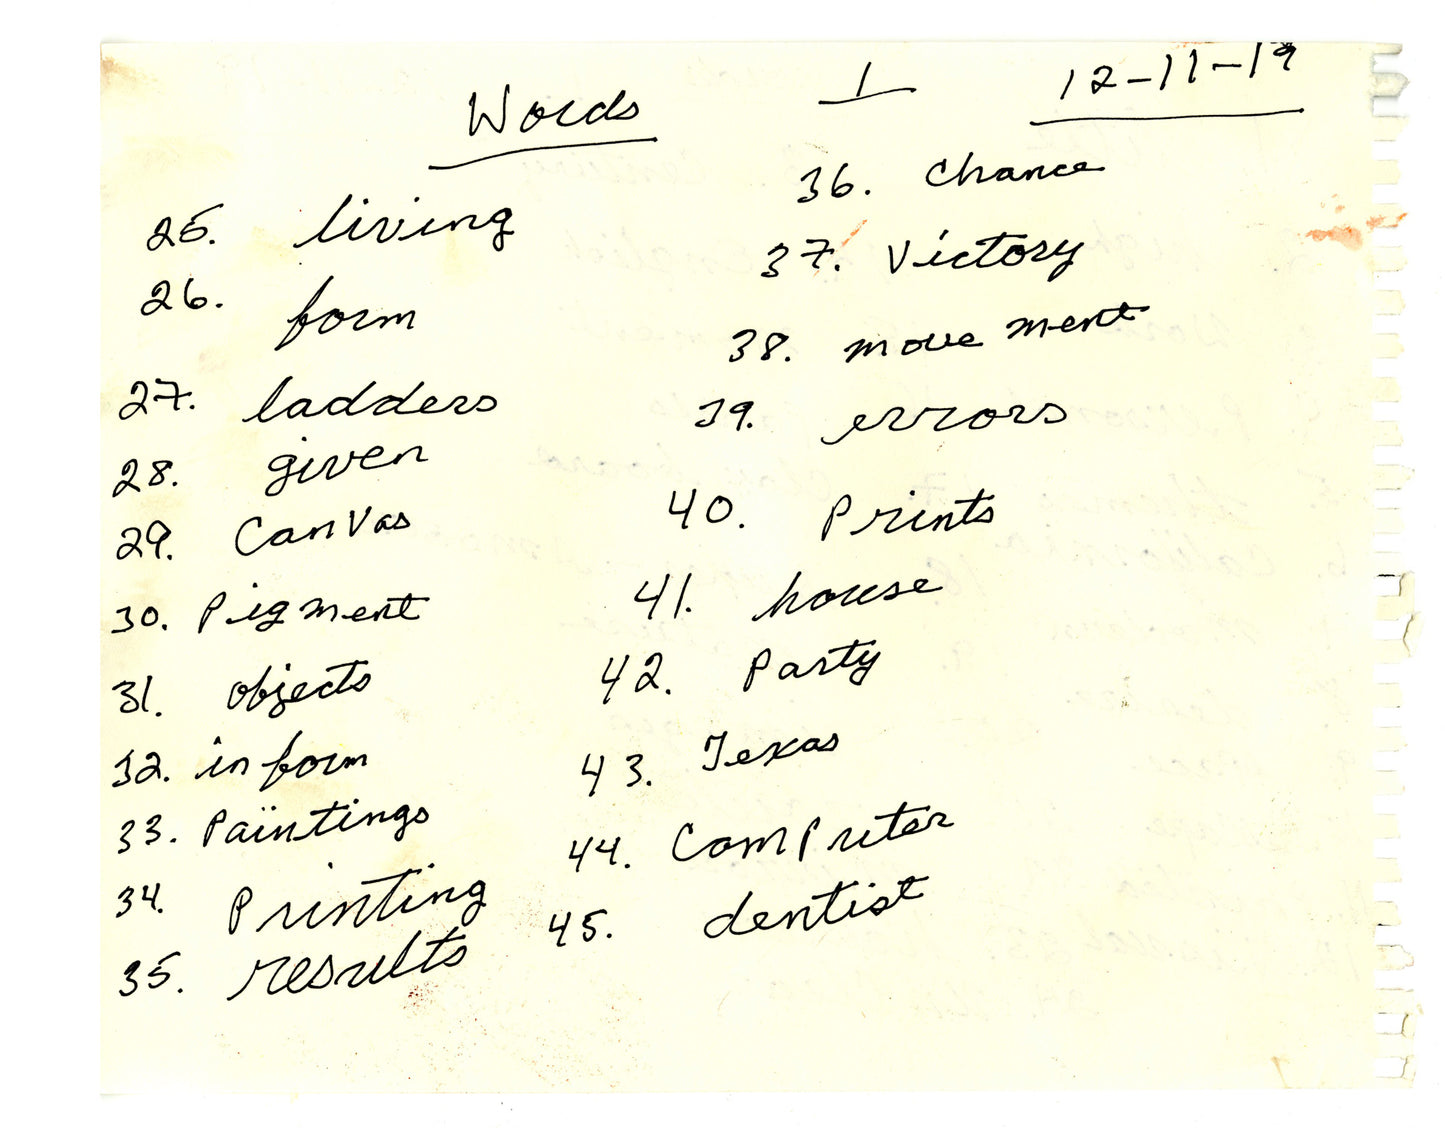 Words
1
12-11-19
25. living
26. form
27. ladders
28. given
29. Canvas
30. Pigment
31. objects
32. in form
33. Paintings
34. Printing
35. results
36. Chance
37. Victory
38. move ment
39. errors
40. Prints
41. house
42. Party
43. Texas
44. Computer
45. dentist